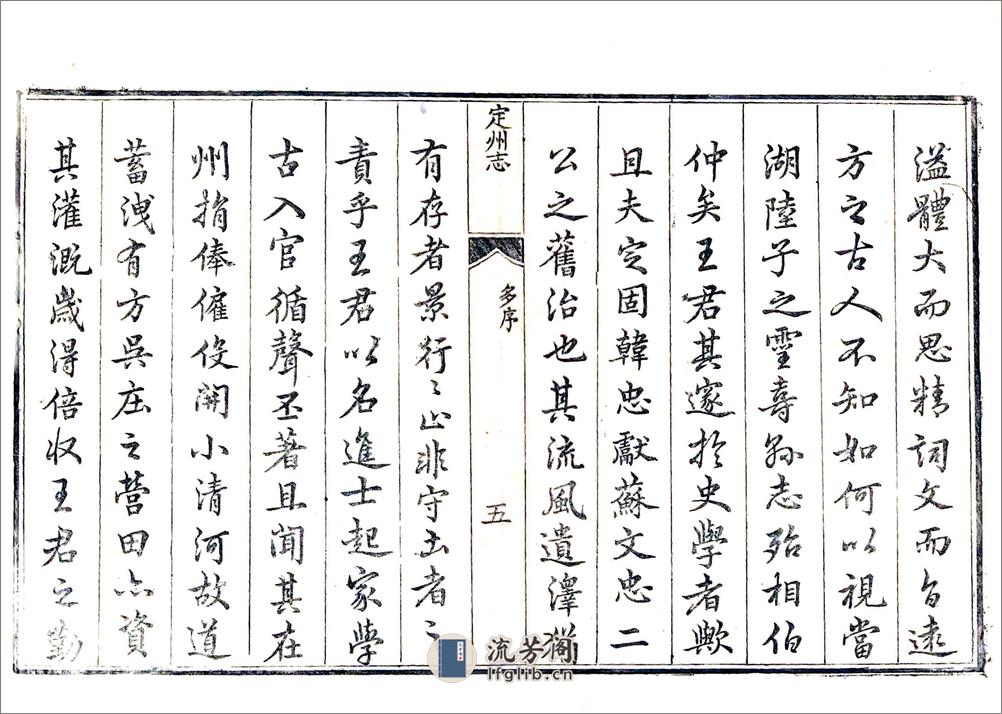 溢體大而思精詞文而旨遠
方之古人不知如何以視當
湖陸子之靈壽縣志殆相伯
仲矣王君其邃於史學者歟
且夫定固韓忠獻蘇文忠二
公之舊治也其流風遺澤猶
定州志
多序
五
有存者景行行止非守土者之
責乎王君以名進士起家學
古入官循聲丕著且聞其在
州捐俸僱役開小清河故道
蓄洩有方吳庄之營田亦資
其灌溉歲得倍收王君之勤
流芳阁
lfglib.cn